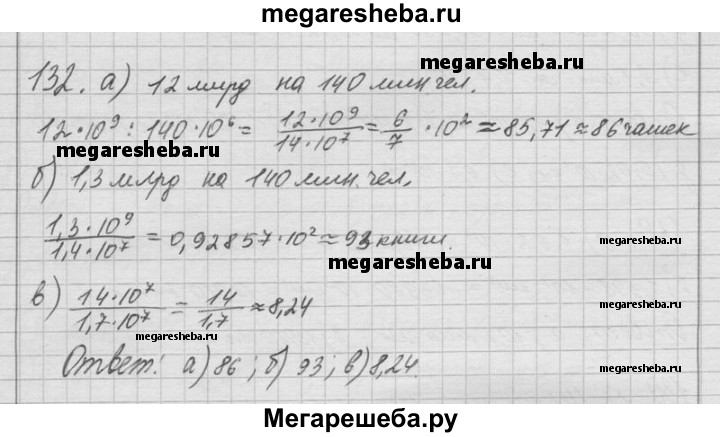 megaresheba.ru
132. а) 12 млрд на 140 млн чел.
megaresheba.ru
12·10⁹ : 140·10⁶ = 12·10⁹/14·10⁷ = 6/7 · 10² ≈ 85,71 ≈ 86 чашек
megaresheba.ru
б) 1,3 млрд на 140 млн. чел.
1,3·10⁹/1,4·10⁷ = 0,92857·10² ≈ 93 книги.
megaresheba.ru
megaresheba.ru
в) 14·10⁷/1,7·10⁷ = 14/1,7 ≈ 8,24
megaresheba.ru
megaresheba.ru
Ответ: а) 86; б) 93; в) 8,24.
megaresheba.ru
Мегарешеба.ру